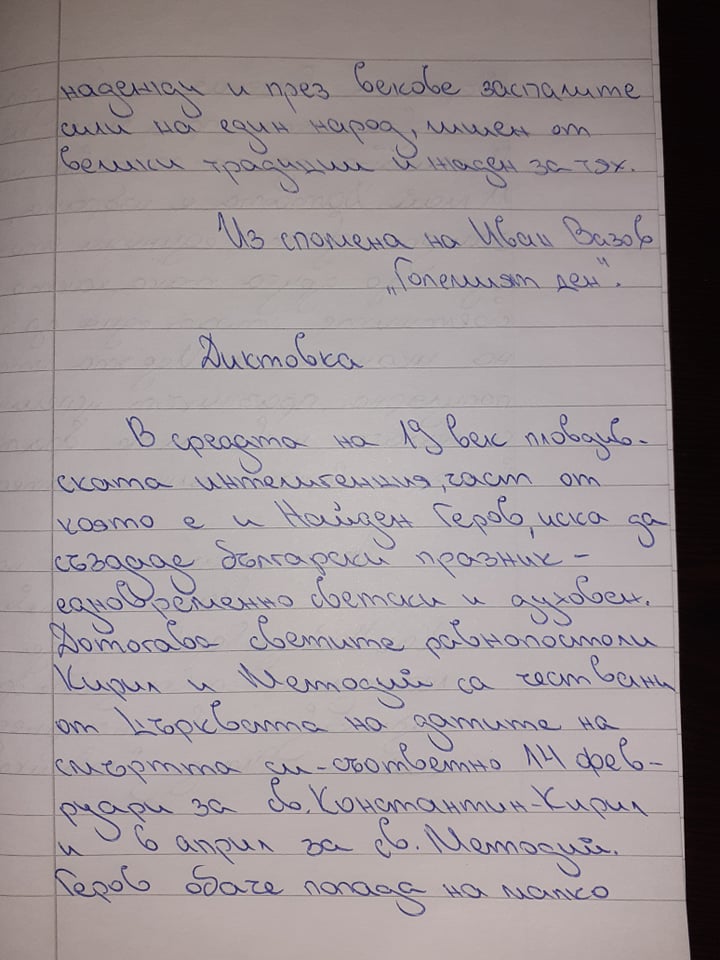 надежди и през векове заспалите
сили на един народ, лишен от
велики традиции и жаден за тях.
Из спомена на Иван Вазов
„Големият ден".
Диктовка
В средата на 19 век пловдив-
ската интелигенция, част от
която е и Найден Геров, иска да
създаде български празник -
едновременно светски и духовен.
Дотогава светите равнопостоли
Кирил и Методий са чествани
от Църквата на датите на
смъртта си - съответно 14 фев-
руари за св. Константин-Кирил
и 6 април за св. Методий.
Геров обаче попада на малко